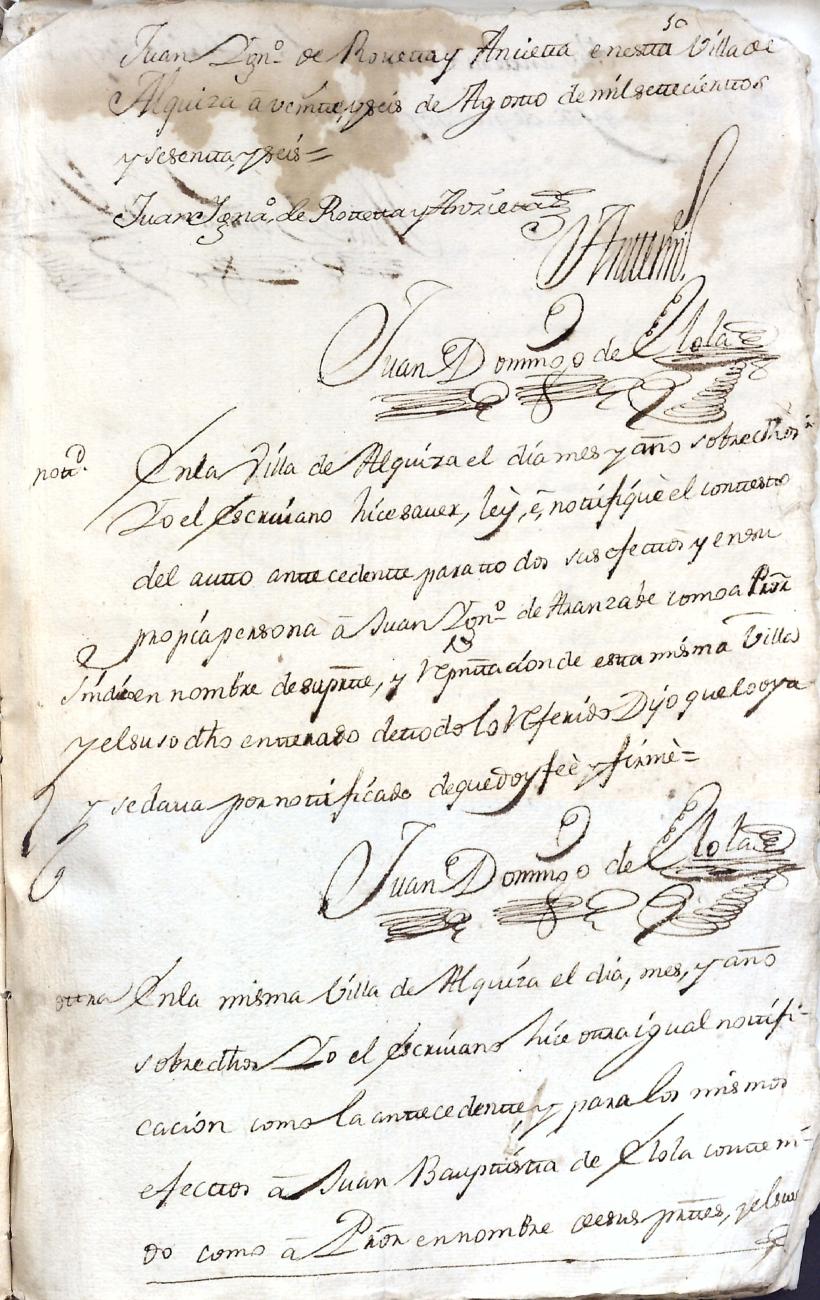 50
Juan Ign.º de Rouetta y Anzietta en esttâ Villa de
Alquiza â veintte, y seis de Agosto de mil settecienttos
y sesentta, y seis=
Juan Ign.º de Rottetta y Anzietta
Antte mi
Juan Domingo de Elola
notti.n En la Villa de Alquiza el dia mes y año sobredhos
Yo el Escriuano hice sauer, leÿ, é, nottifiquè el conttestto
del autto anttecedentte para ttodos sus efecttos y en su
propia persona â Juan Ign.º de Aranzabe como a Pror
Sindico en nombre de su partte, y Repntacion de estta misma Villa
y el suso dho entterado de ttodo lo Referido Dijo que lo oya
y se daua por nottificado de que doy feè y firmè=
Juan Domingo de Elola
ottra En la misma Villa de Alquiza el dia, mes, y año
sobredhos Yo el Escriuano hice ottra igual nottifi-
cación como la anttecedentte, y para los mismos
efecttos â Juan Bauptistta de Elola contteni-
do como â Pror en nombre de sus prttes, y el suso